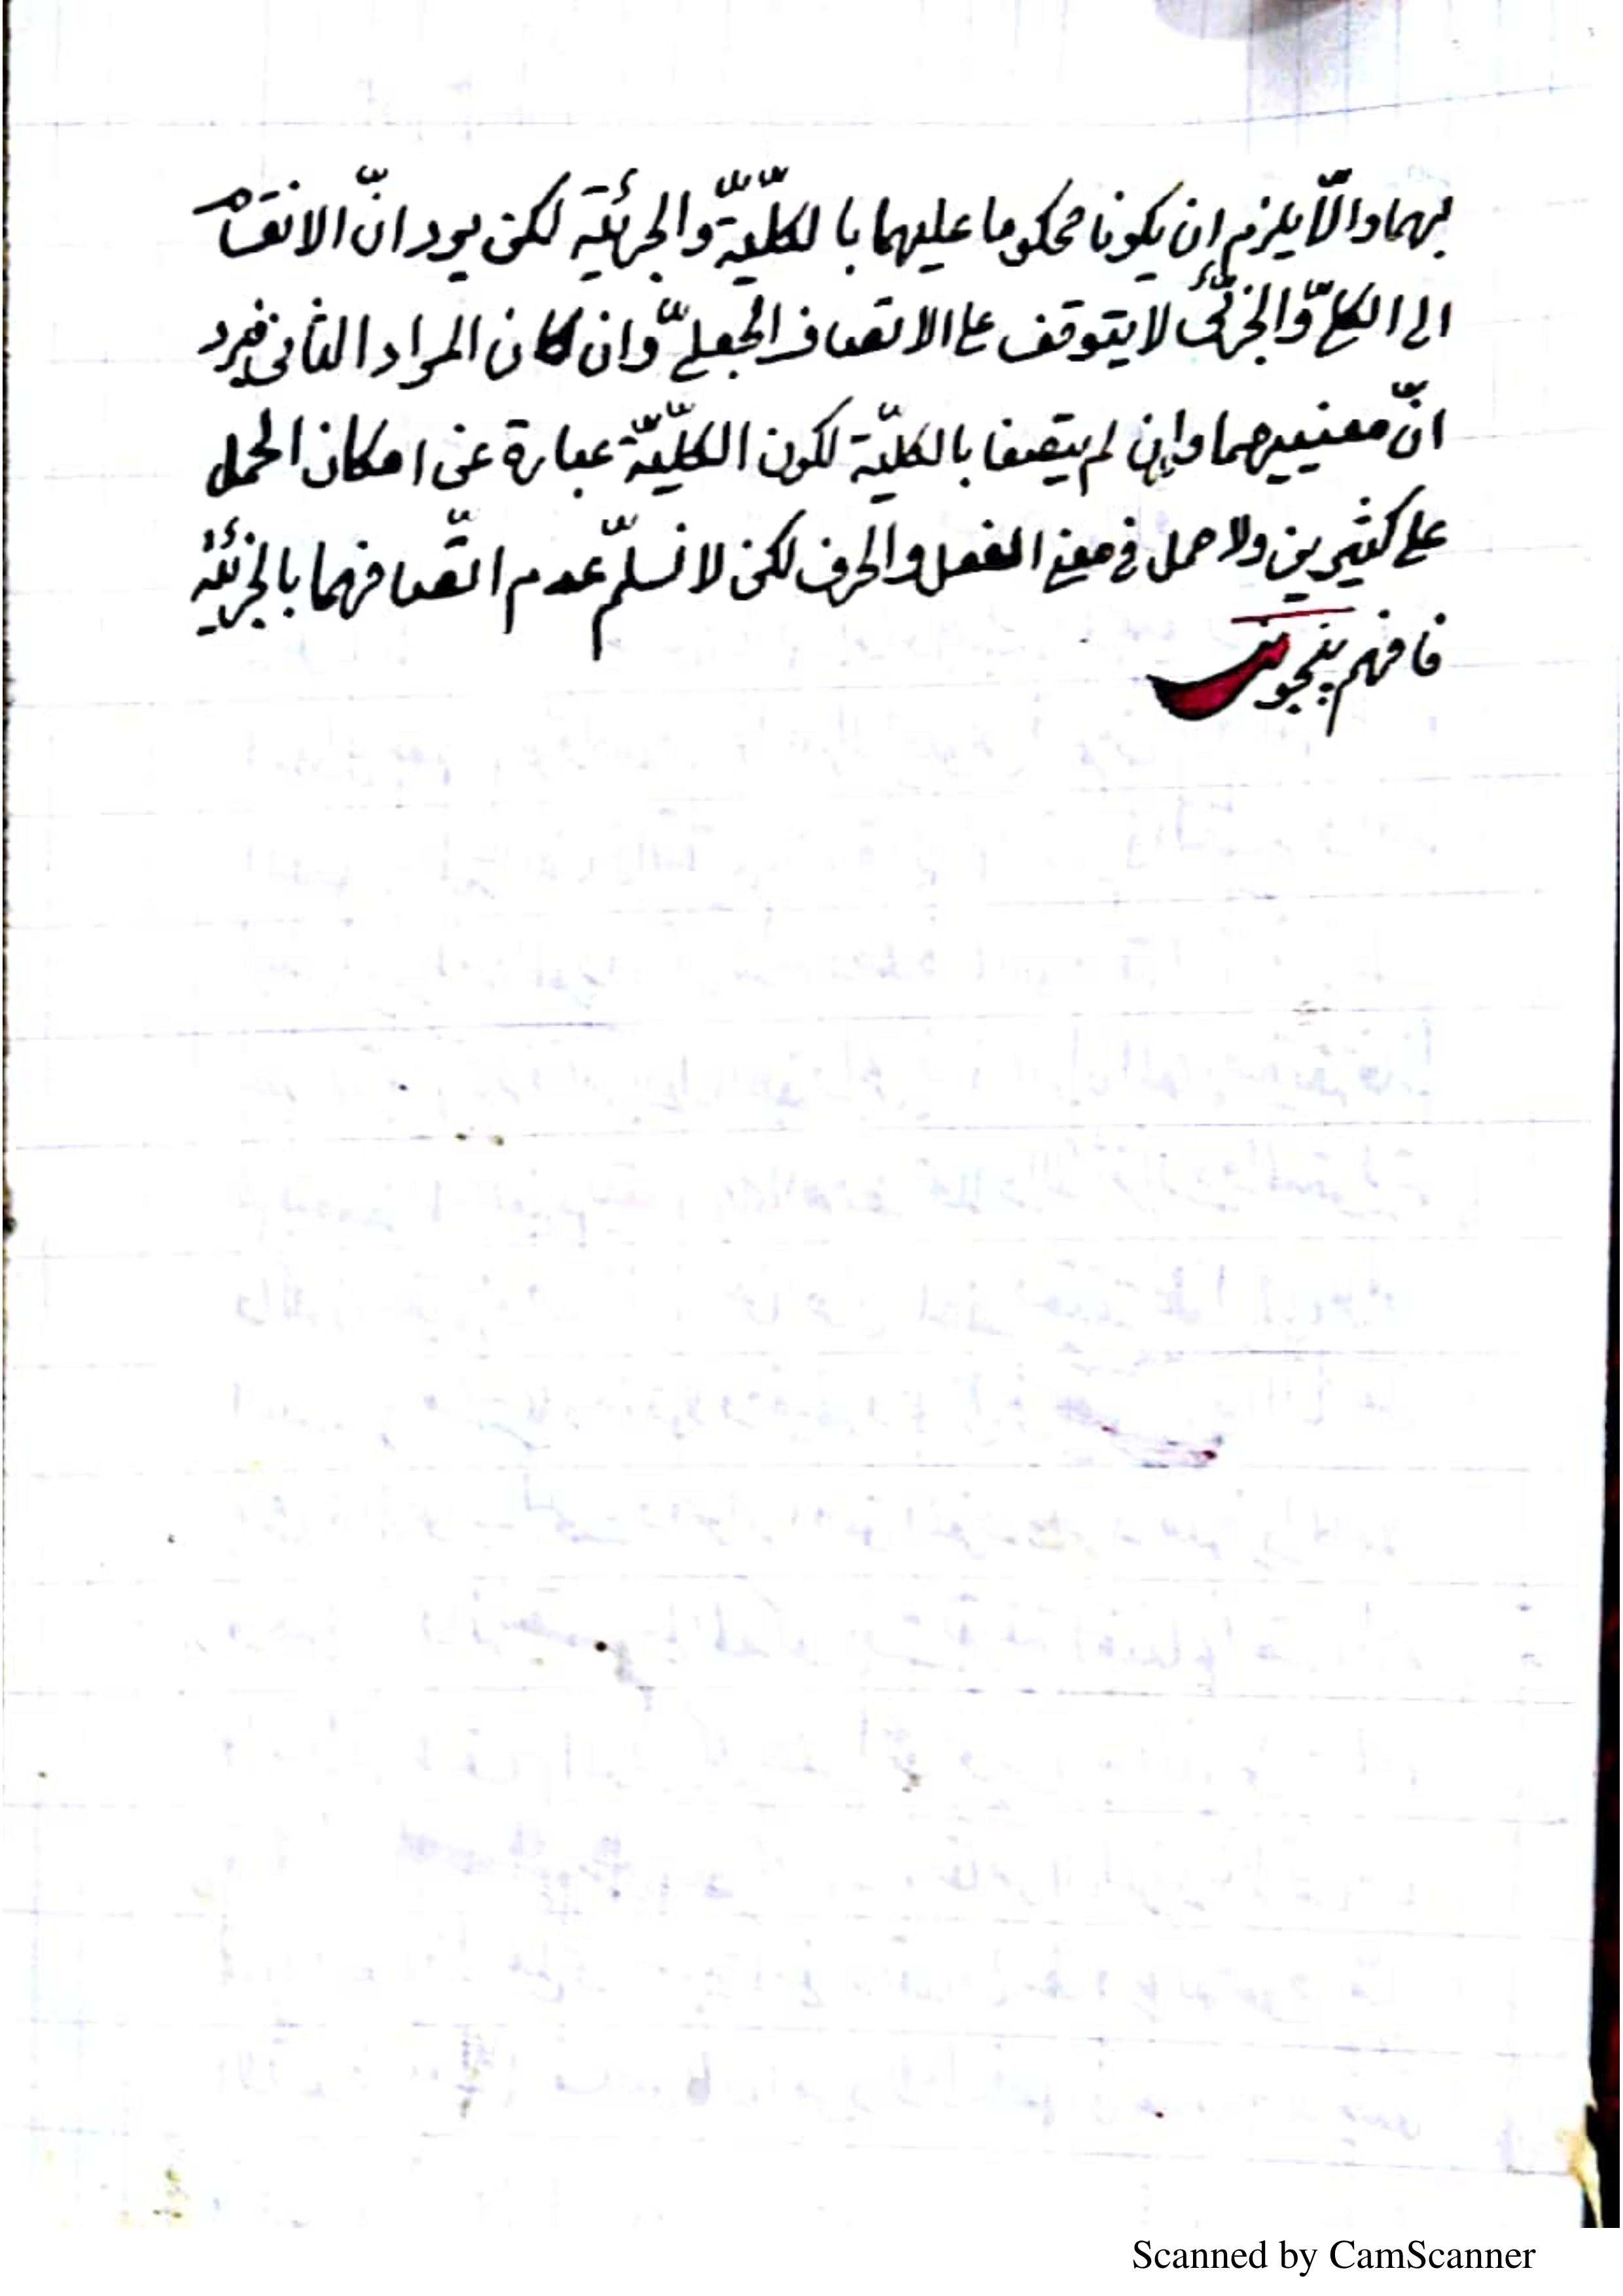 بهما والّا يلزم ان يكونا محكوما عليهما با لكلّيّة والجزئية لكن يرد انّ الانقسام
الى الكلىّ والجزئىّ لا يتوقف على الاتصاف الجعلىّ وان كان المراد الثانى فيرد
انّ معنييهما وان لم يتصفا بالكليّة لكون الكلّيّة عبارة عن امكان الحمل
على كثيرين ولا حمل فى معنى الفعل والحرف لكن لا نسلّم عدم اتّصافهما بالجزئيّة
فافهم پنجوينى
Scanned by CamScanner